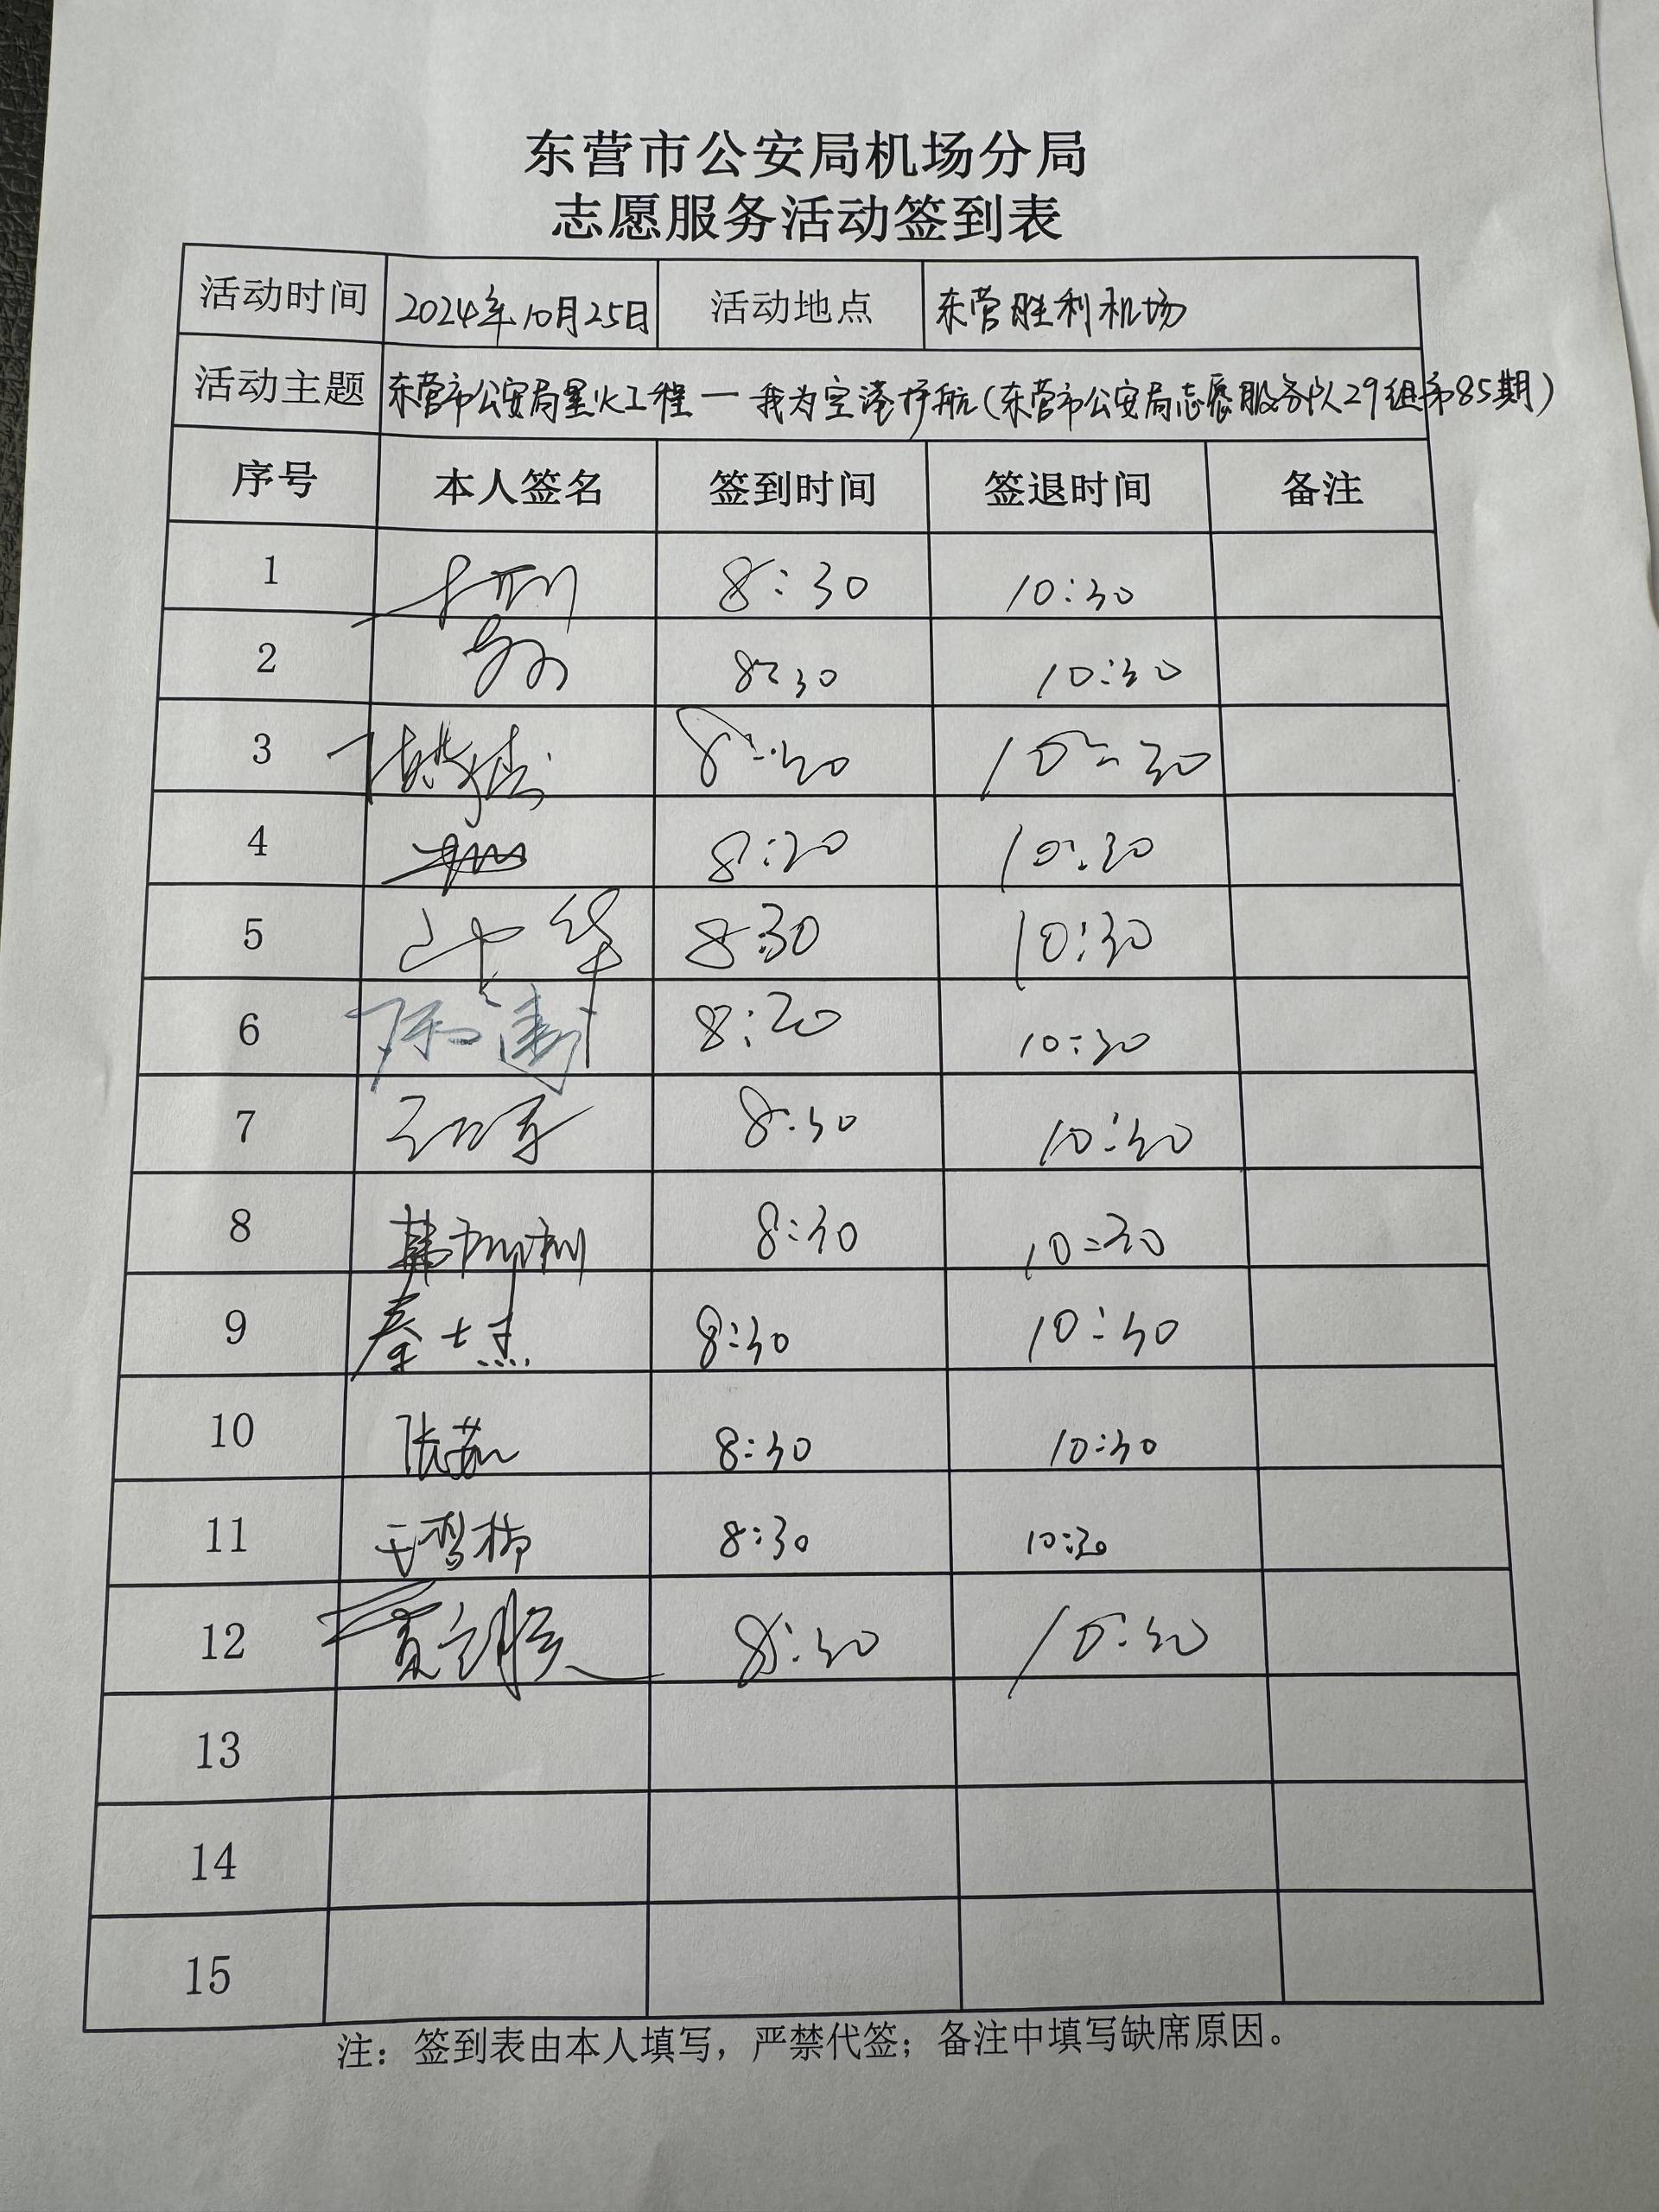 东营市公安局机场分局
志愿服务活动签到表
活动时间 2024年10月25日 活动地点 东营胜利机场
活动主题 东营市公安局星火工程一我为空港护航(东营市公安局志愿服务队29组第85期)
序号 本人签名 签到时间 签退时间 备注
1 8:30 10:30
2 8:30 10:30
3 8:30 10:30
4 8:30 10:30
5 8:30 10:30
6 8:30 10:30
7 8:30 10:30
8 8:30 10:30
9 秦士杰 8:30 10:30
10 张茹 8:30 10:30
11 8:30 10:30
12 8:30 10:30
13
14
15
注：签到表由本人填写，严禁代签；备注中填写缺席原因。